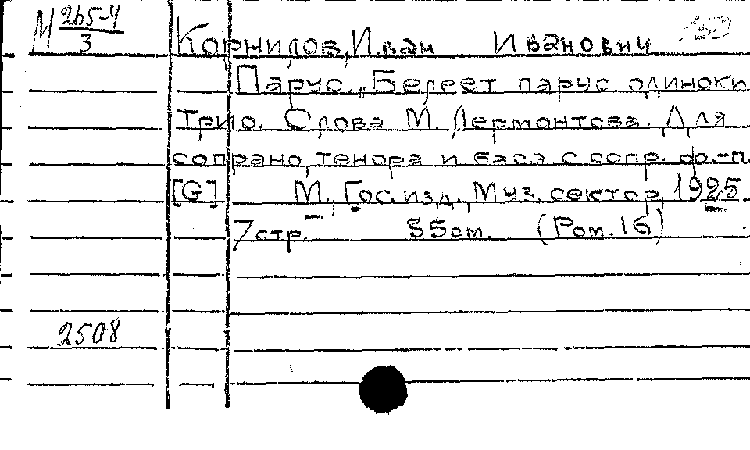 М 265-4/3
Корнилов, Иван Иванович
Парус. „Белеет парус одиноки
Трио. Слова М. Лермонтова. Для
сопрано, тенора и баса с сопр. ф.-п.
[G] М., Гос. изд., Муз. сектор, 1925.
7 стр. 55 от. (Rom. 16)
2508